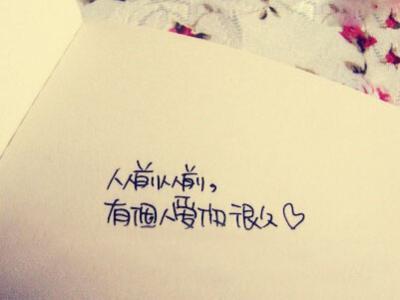 从前从前，
有個人愛你很久♡